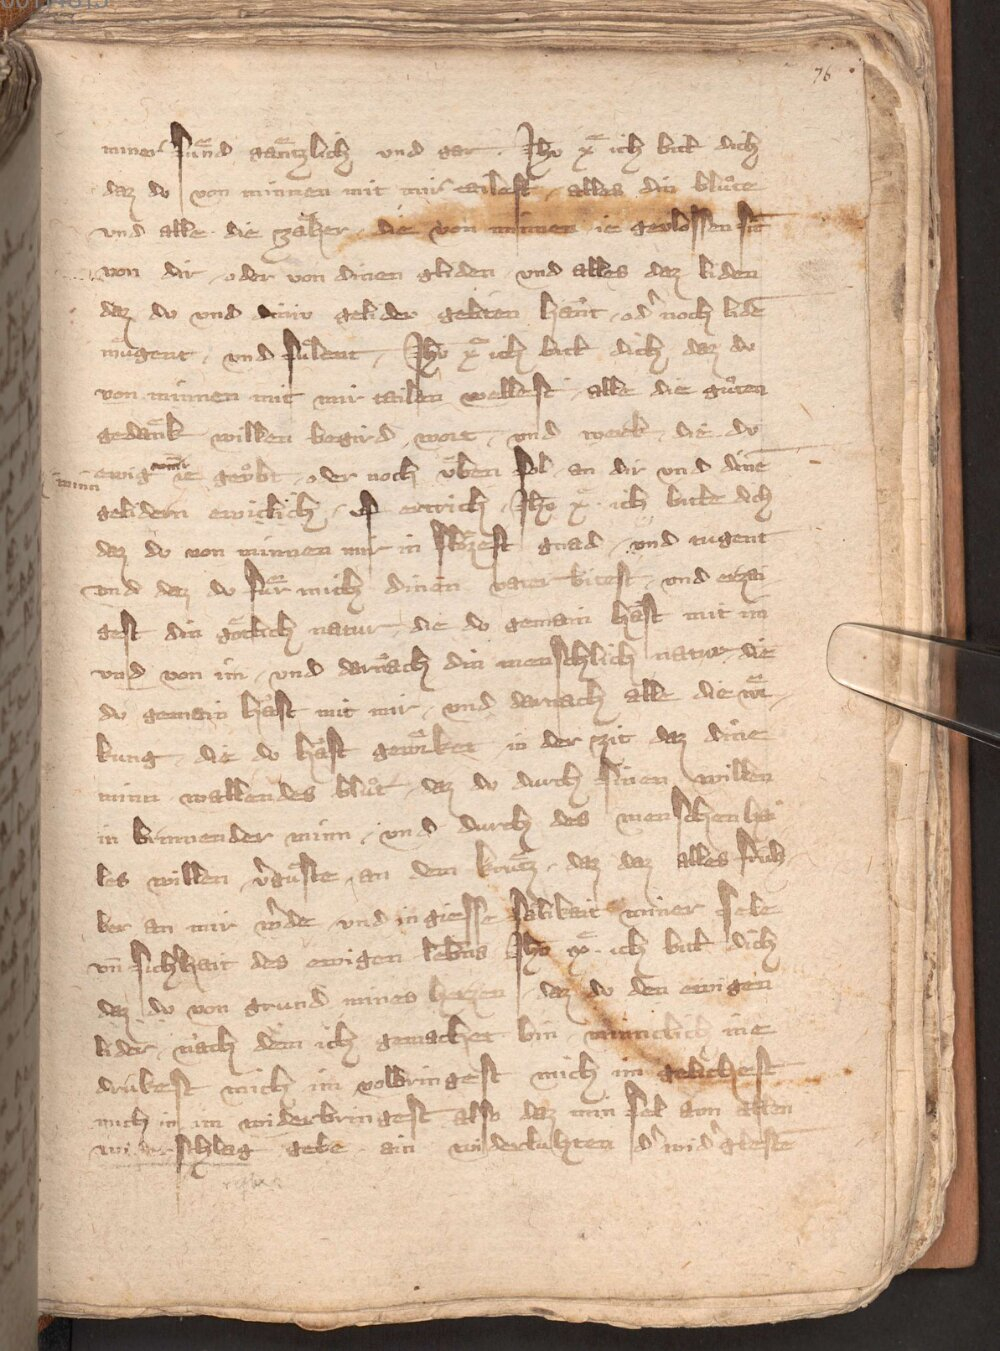 76
miner sünd gäntzlich vnd gar. Jhū xp̄e ich bitt dich
daz du von minnen mit mir tailest alles din blůte
vnd alle die zäher die von minnen ie gevlossen sīt
von dir oder von dinen gliden vnd alles daz liden
daz du vnd diniv gelider geliten hant od̄ noch lidē
mügent vnd sülent Jhū xp̄e ich bitt dich daz du
von minnen mit mir tailen wellest alle die gůten
gedänk willen begird wort vnd werck die du
ewig ie geu̇bt oder noch üben sol an dir vnd dinē
minn
gelidern ewiclich vf ertrich Jhū xp̄e ich bitte dich
daz du von minnen mir in flözest gnad vnd tugent
vnd daz du für mich dinen vater bitest vnd erzai
gest din götlich natur die du gemain hast mit im
vnd von im vnd darnach din menschlich natur die
du gemain hast mit mir vnd darnach alle die wr̄
kung die du hast gewürket in der zit daz dine
minn wallendes blůt daz du durch sinen willen
in brinnender minn vnd durch des menschen hai
les willen v̄guste an dem krütz daz daz alles
ber an mir w̄de vnd ingiesse sälikait miner sele
vn̄ sichhait des ewigen lebens Jhū xp̄e ich bitt dich
daz du von grund mines hertzen daz du den ewigen
lider nach dem ich gemachet bin minneclich ine
drükest mich im volbringest mich im gelichest
mich in im widerbringest also daz min sel aun allen
widerschlag gebe ain widerluhten d̄ wid̄glestē